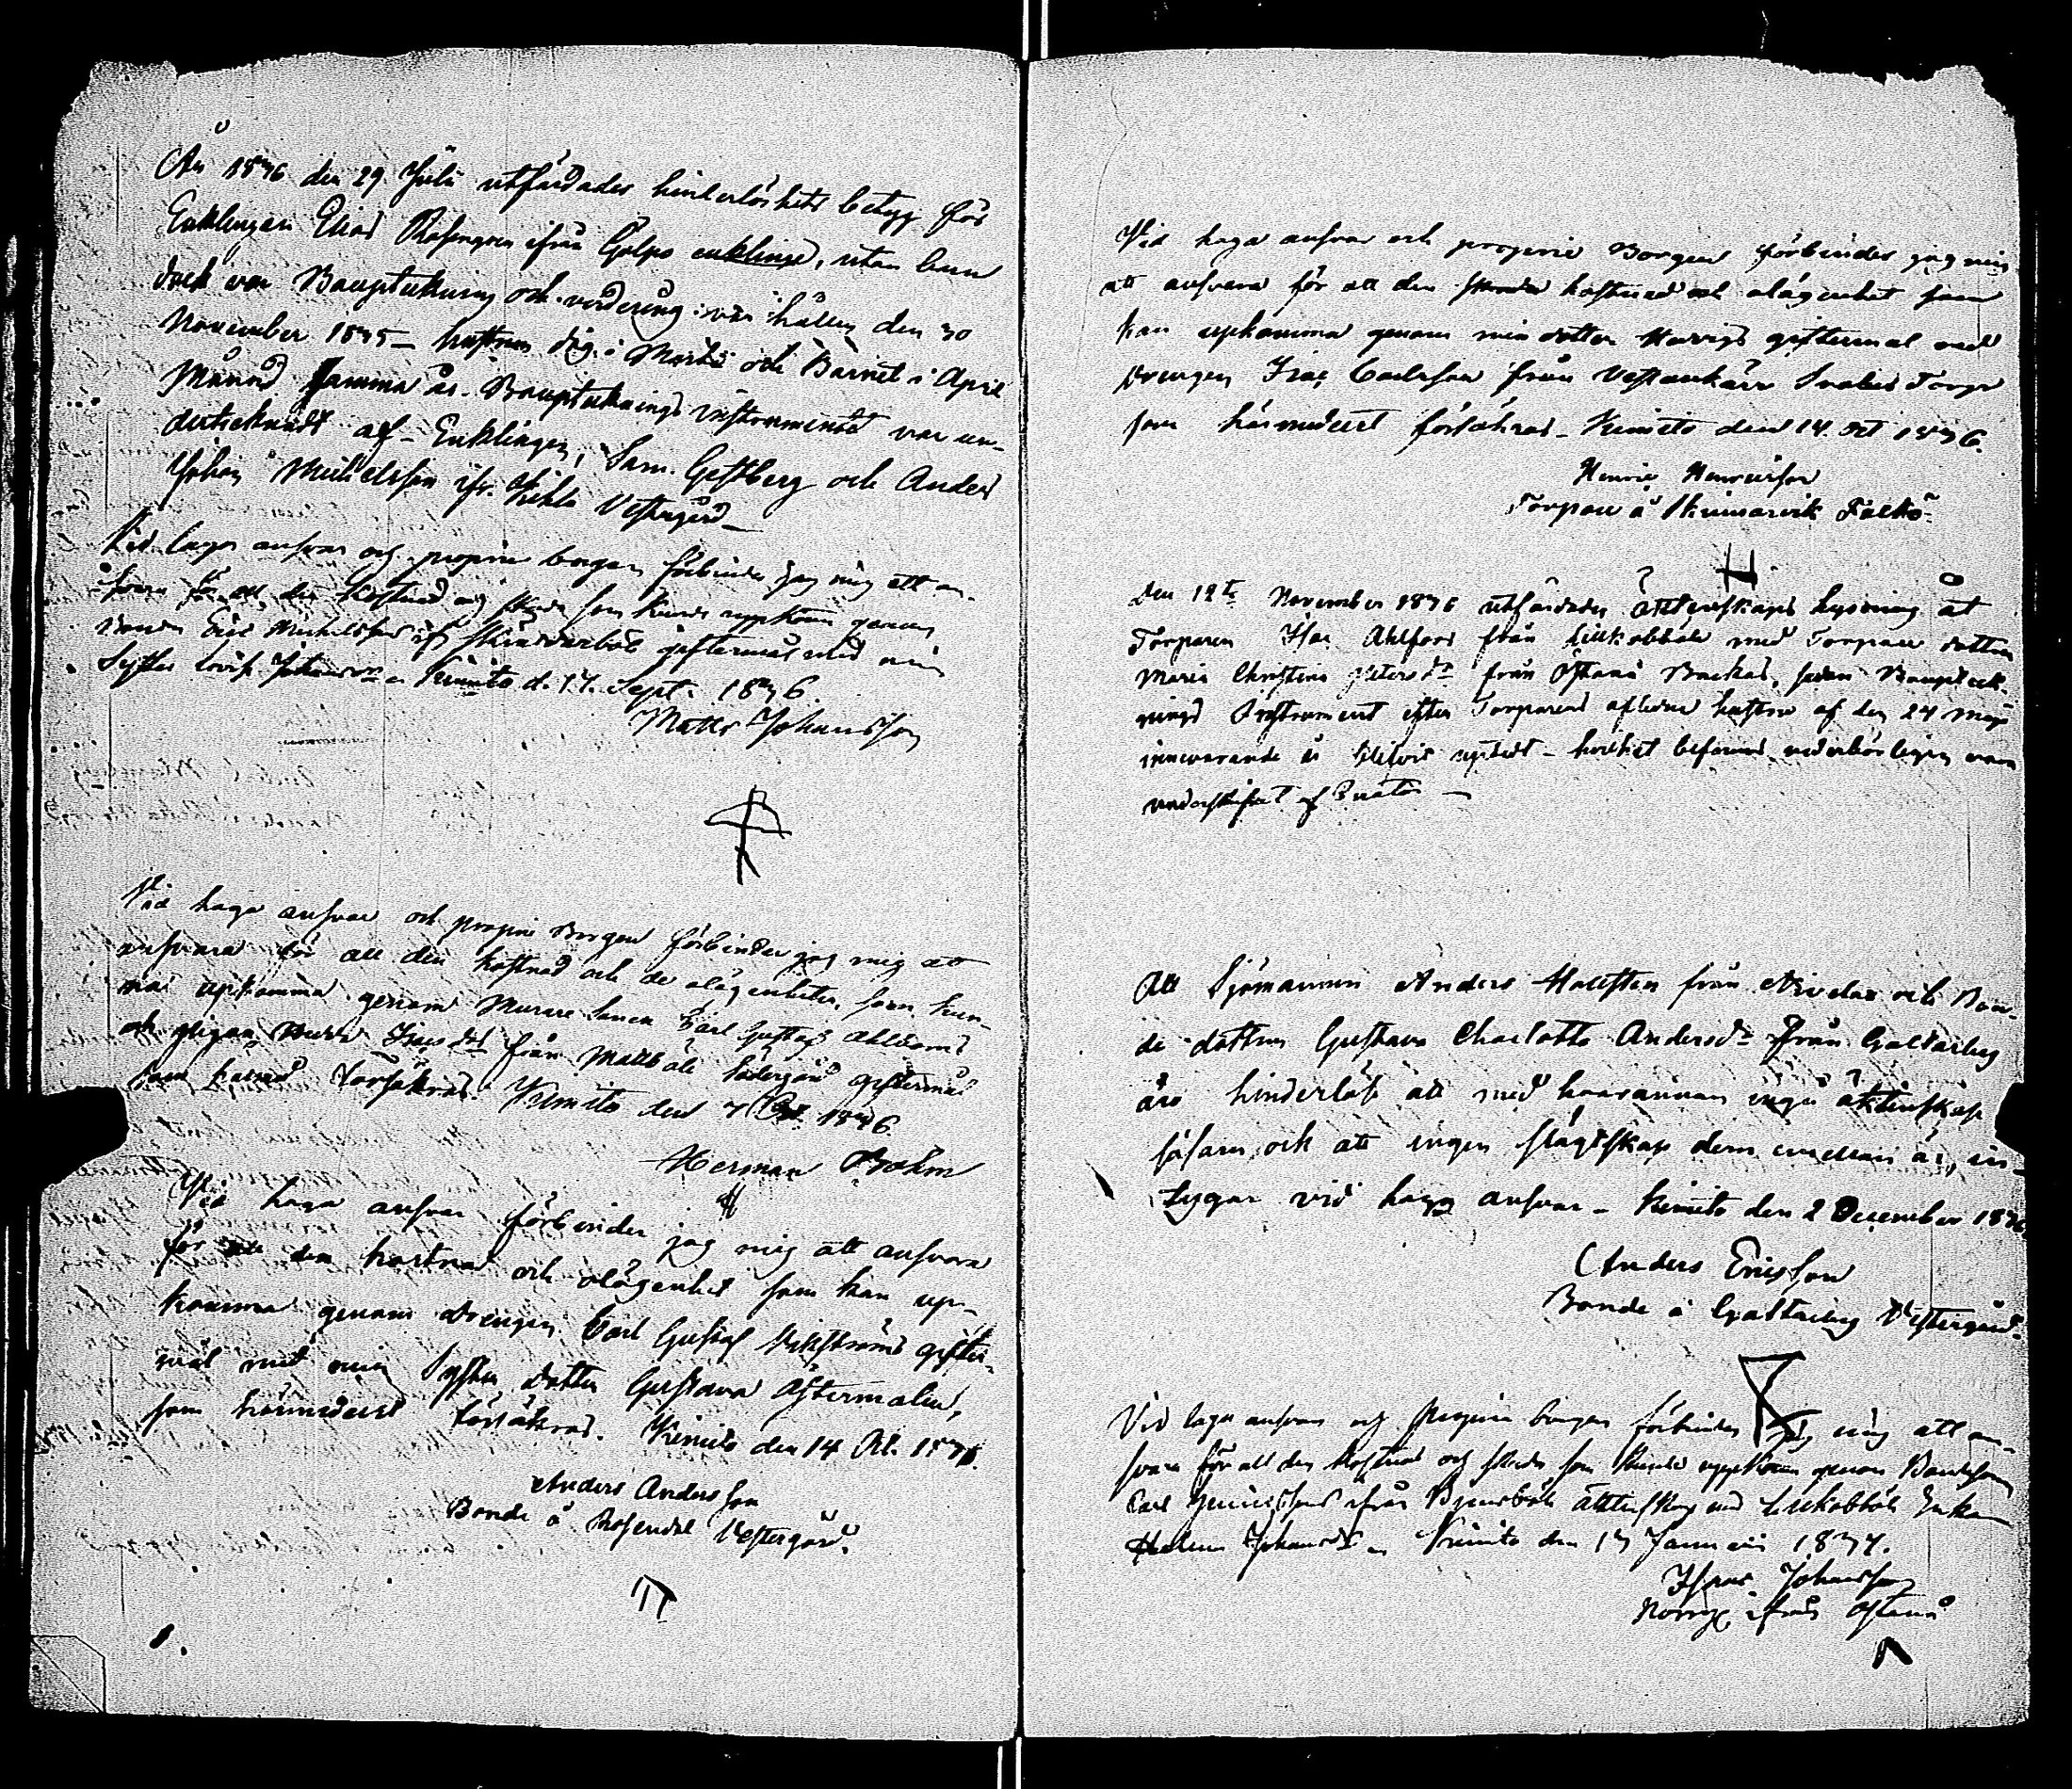 År 1876 den 29 Juli utfärdades hinderlöshets betyg för
Enklingen Elias Rosengren ifrån Galpo enklinge, utan hun
dock var Bouptekning och värdering var hållen den 30
November 1875 – hustrun dog i Martii och Barnet i April
Månad samma år. Bouptekningsinstrumentet var un-
dertecknadt af – Enklingen, Sam. Gestberg och Anders
Johan Michelsson ifr. Vikla Vestergård –
Vid laga ansvar och proprie borgen förbinder jag mig att an-
svara för all den kostnad och skada som kunde uppkomma genom
Eric Michelsson giftermål med min
Syster Lovisa Johansdr – Kimito d. 17. Sept. 1876.
Matts Johansson
Vid laga ansvar och proprie Borgen förbinder jag mig att
ansvara för all den kostnad och de olägenheter, som kun-
na upkomma genom Murare sonen Carl Gustaf Ahlroms
och pigan Maria Isacsdr från Mattböle Södergård giftermål
som härmed försäkras. Kimito den 7 Oct. 1876.
Herman Boström
Vid laga ansvar förbinder jag mig att ansvara
för all den kostnad och olägenhet som kan up-
komma genom drengen Carl Gustaf Vikströms gifter-
mål med min Syster dotter Gustava Östermalm,
som härmedelst försäkras. Kimito den 14 Oct. 1876.
Anders Andersson
Bonde å Rosendal Vestergård.
Vid laga ansvar och proprie Borgen förbinder jag mig
att ansvara för all den skada kostnad och olägenhet som
kan uppkomma genom min dotter Hedvigs giftermål med
drengen Isac Carlsson från Vestankärr Torp
som härmedelst försäkras – Kimito den 14. Oct 1876.
Henric Henricsson
Torpare å Skinnarvik Falkö
Den 12te November 1876 utfärdades äktenskaps lysning åt
Torparen Isac Ahlfors från Lillkobböle med Torpare dottern
Maria Christina Petersdr från Östanå Backas, sedan Bouptek-
nings Instrument efter Torparens aflidne hustru af den 24 Maji
innevarande år blifvit uptedt – hvilket befanns vederbörligen vara
underskrifvit af
Att Sjömannen Anders Hallsten från och Bon-
de dottren Gustava Charlotta Andersdr från Galtarby
äro hinderlösa att med hvarannan ingå äktenskap
såsom och att ingen slägtskap dem emellan är, in-
tygar vid laga ansvar – Kimito den 2 December 1876
Anders Ericsson
Bonde å Galtarby Vestergård.
Vid laga ansvar och proprie borgen förbinder jag mig att an-
svara för all den kostnad och skada som kunde uppkomma genom Bondeson
Carl ifrån Björsböle äktenskap med Lillkobböle Enkan
Helena Johansdr – Kimito den 17 Januari 1877.
Isac Johansson
Norrg. ifrån Östanå